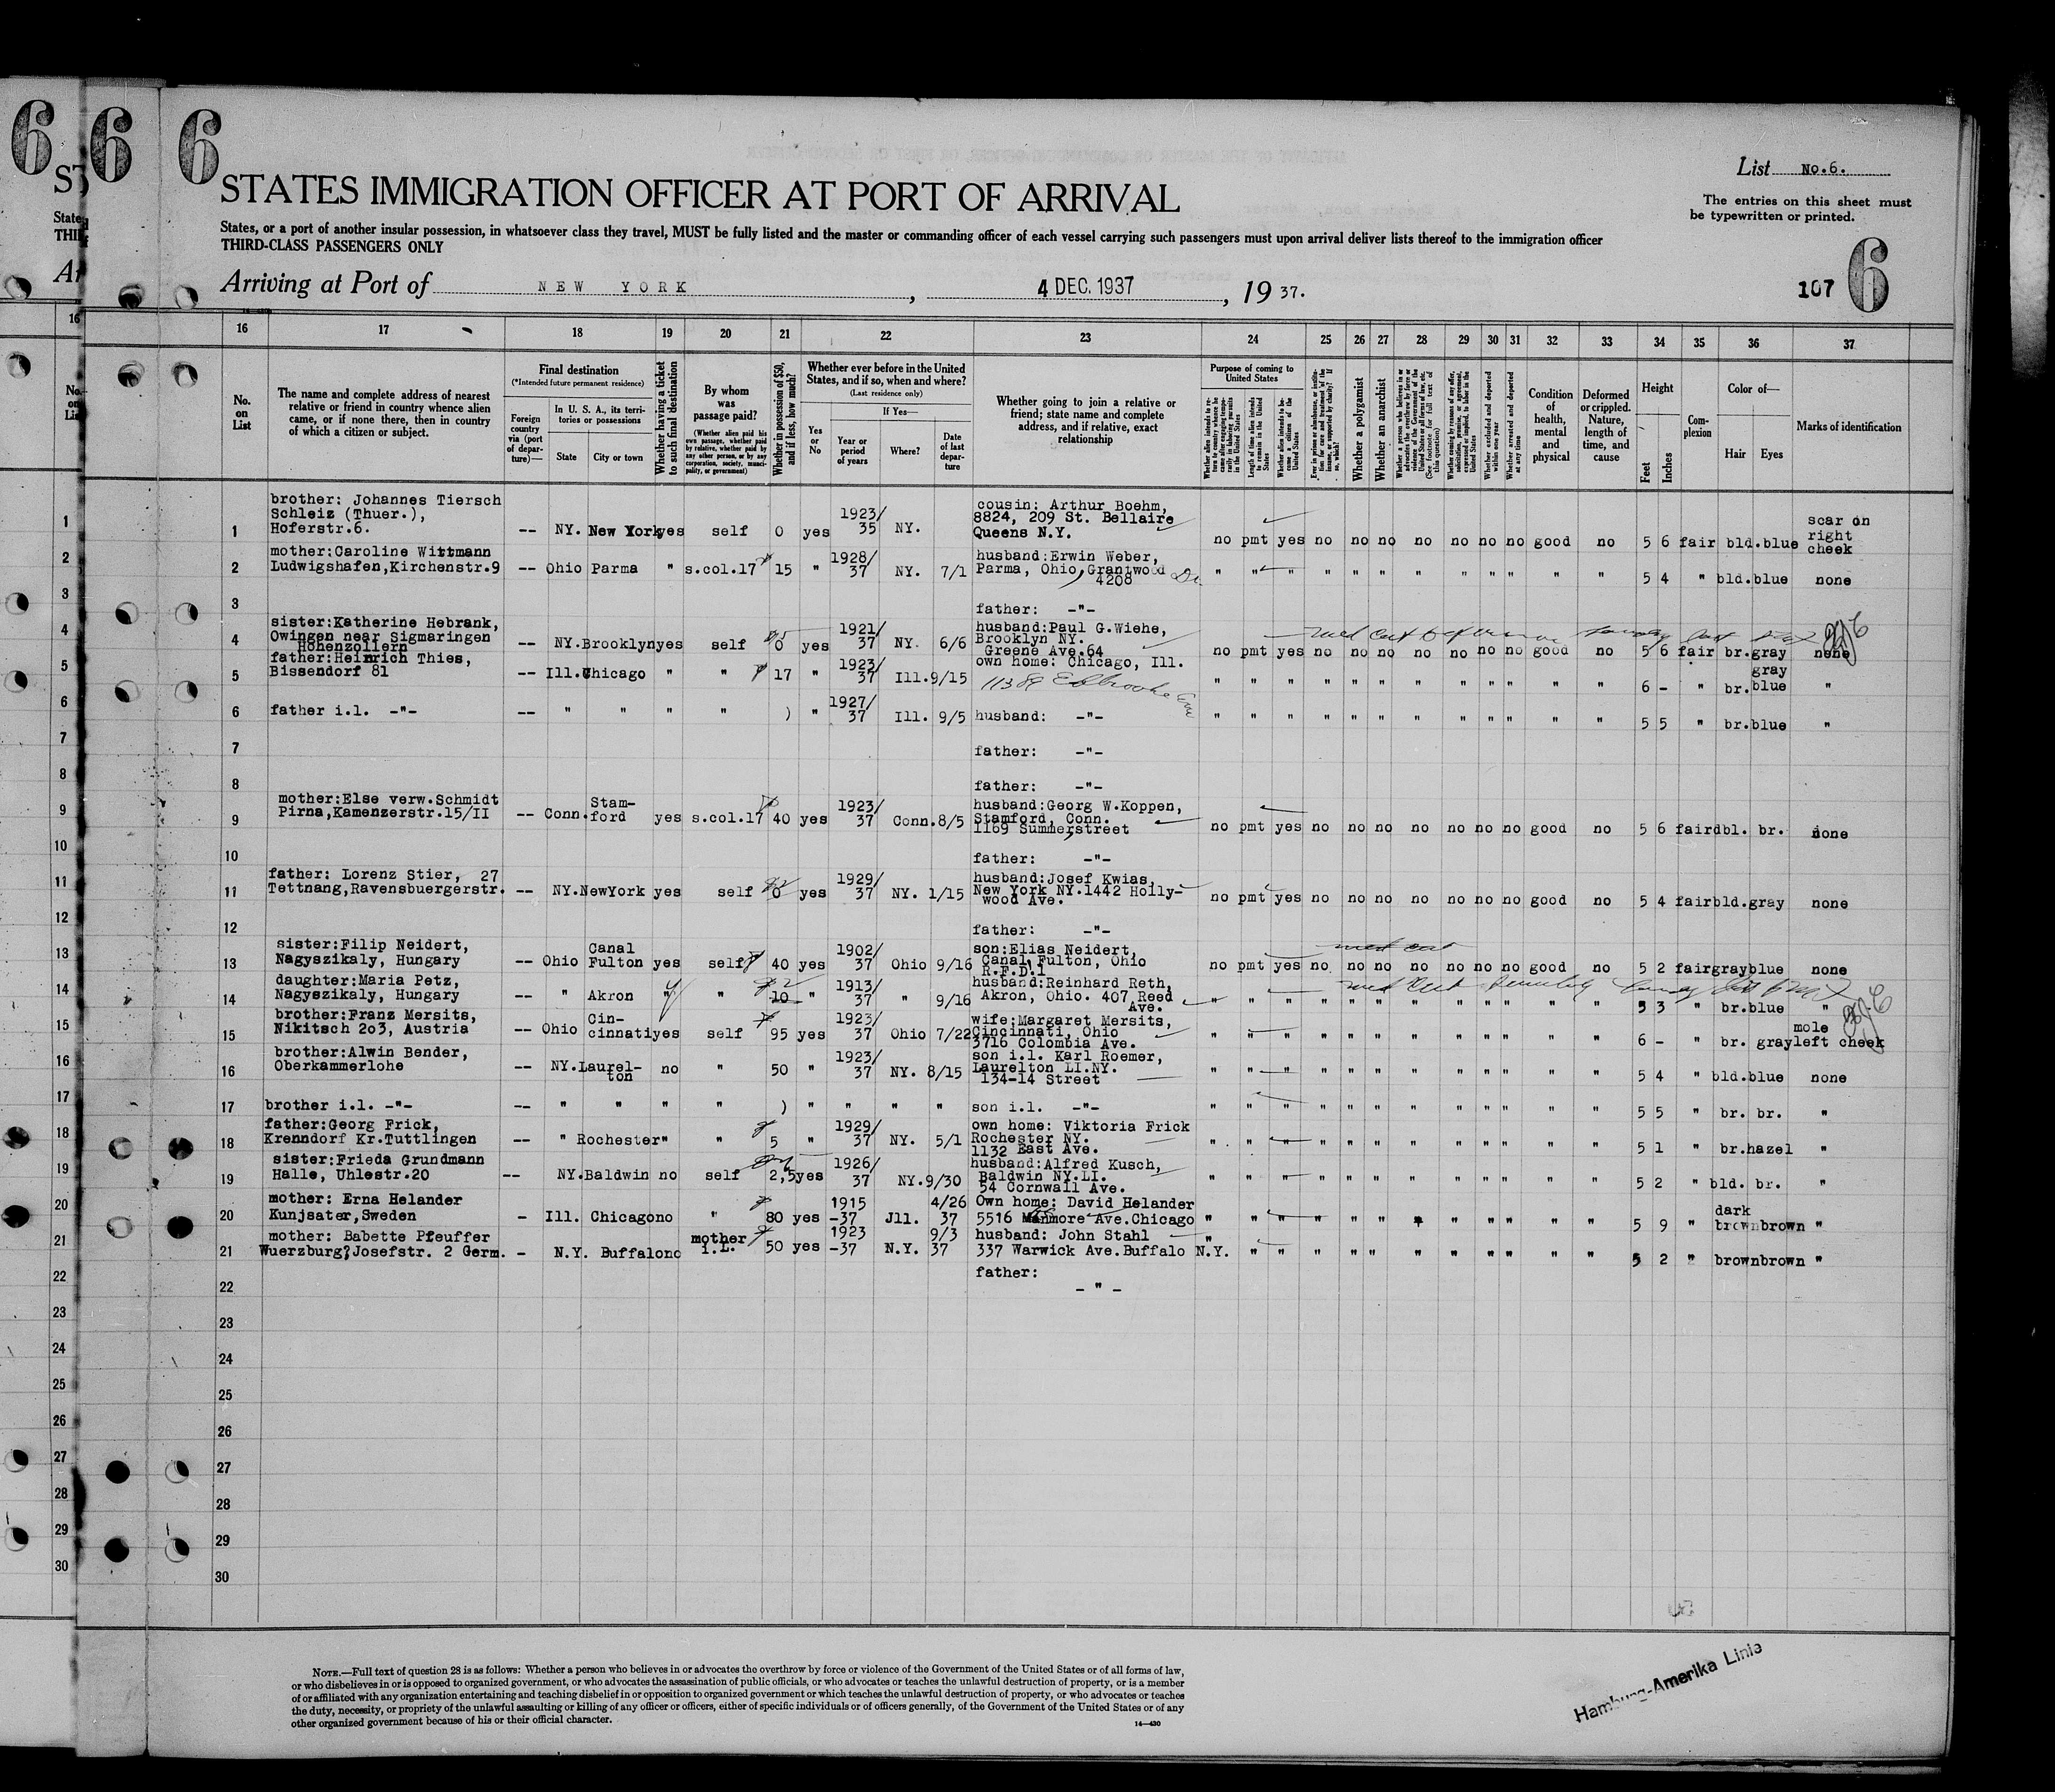 6
6
6
ST
State
THI
Ar
STATES IMMIGRATION OFFICER AT PORT OF ARRIVAL
List No.6.
The entries on this sheet must
be typewritten or printed.
States, or a port of another insular possession, in whatsoever class they travel, MUST be fully listed and the master or commanding officer of each vessel carrying such passengers must upon arrival deliver lists thereof to the immigration officer
THIRD-CLASS PASSENGERS ONLY
Arriving at Port of NEW YORK, 4 DEC. 1937, 19 37.
107 6
16 17 18 19 20 21 22 23 24 25 26 27 28 29 30 31 32 33 34 35 36 37
No. on List
The name and complete address of nearest
relative or friend in country whence alien
came, or if none there, then in country
of which a citizen or subject.
Final destination
(*Intended future permanent residence)
Foreign country via (port of departure)—
In U. S. A., its territories or possessions
State
City or town
Whether having a ticket to such final destination
By whom was passage paid?
(Whether alien paid his own passage, whether paid by relative, whether paid by any other person, or by any corporation, society, municipality, or government)
Whether in possession of $50, and if less, how much?
Whether ever before in the United
States, and if so, when and where?
(Last residence only)
Yes or No
If Yes—
Year or period of years
Where?
Date of last departure
Whether going to join a relative or
friend; state name and complete
address, and if relative, exact
relationship
Purpose of coming to United States
Whether a polygamist
Whether an anarchist
Condition of health, mental and physical
Deformed or crippled. Nature, length of time, and cause
Height
Feet
Inches
Complexion
Color of—
Hair
Eyes
Marks of identification
1 brother: Johannes Tiersch
Schleiz (Thuer.),
Hoferstr.6. -- NY. New York yes self 0 yes 1923/35 NY. cousin: Arthur Boehm,
8824, 209 St. Bellaire
Queens N.Y. no pmt yes no no no no no no no good no 5 6 fair bld. blue scar on right cheek
2 mother:Caroline Wittmann
Ludwigshafen,Kirchenstr.9 -- Ohio Parma " s.col.17 15 " 1928/37 NY. 7/1 husband:Erwin Weber,
Parma, Ohio, Grantwood
4208 " " " " " " " " " " " " 5 4 " bld. blue none
3 father: -"-
4 sister:Katherine Hebrank,
Owingen near Sigmaringen
Hohenzollern -- NY. Brooklyn yes self 0 yes 1921/37 NY. 6/6 husband:Paul G.Wiehe,
Brooklyn NY.
Greene Ave.64 no pmt yes no no no no no no no good no 5 6 fair br. gray none
5 father:Heinrich Thies,
Bissendorf 81 -- Ill. Chicago " " 17 " 1923/37 Ill. 9/15 own home: Chicago, Ill.
" " " " " " " " " " " " 6 - " br. gray blue "
6 father i.l. -"- -- " " " " ) " 1927/37 Ill. 9/5 husband: -"- " " " " " " " " " " " " 5 5 " br. blue "
7 father: -"-
8 father: -"-
9 mother:Else verw.Schmidt
Pirna,Kamenzerstr.15/II -- Conn. Stam-
ford yes s.col.17 40 yes 1923/37 Conn. 8/5 husband:Georg W.Koppen,
Stamford, Conn.
1169 Summerstreet no pmt yes no no no no no no no good no 5 6 fair dbl. br. none
10 father: -"-
11 father: Lorenz Stier, 27
Tettnang,Ravensbuergerstr. -- NY. NewYork yes self 0 yes 1929/37 NY. 1/15 husband:Josef Kwias,
New York NY.1442 Holly-
wood Ave. no pmt yes no no no no no no no good no 5 4 fair bld. gray none
12 father: -"-
13 sister:Filip Neidert,
Nagyszikaly, Hungary -- Ohio Canal
Fulton yes self 40 yes 1902/37 Ohio 9/16 son:Elias Neidert,
Canal Fulton, Ohio
R.F.D.1 no pmt yes no no no no no no no good no 5 2 fair gray blue none
14 daughter:Maria Petz,
Nagyszikaly, Hungary -- " Akron " 10 " 1913/37 " 9/16 husband:Reinhard Reth,
Akron, Ohio. 407 Reed
Ave. " " " " " " " " " " " " 5 3 " br. blue "
15 brother:Franz Mersits,
Nikitsch 2o3, Austria -- Ohio Cin-
cinnati yes self 95 yes 1923/37 Ohio 7/22 wife:Margaret Mersits,
Cincinnati, Ohio
3716 Colombia Ave. " " " " " " " " " " " " 6 - " br. gray mole left cheek
16 brother:Alwin Bender,
Oberkammerlohe -- NY. Laurel-
ton no " 50 " 1923/37 NY. 8/15 son i.l. Karl Roemer,
Laurelton LI.NY.
134-14 Street " " " " " " " " " " " " 5 4 " bld. blue none
17 brother i.l. -"- -- " " " " ) " " " " son i.l. -"- " " " " " " " " " " " " 5 5 " br. br. "
18 father:Georg Frick,
Krenndorf Kr.Tuttlingen -- " Rochester " " 5 " 1929/37 NY. 5/1 own home: Viktoria Frick
Rochester NY.
1132 East Ave. " " " " " " " " " " " " 5 1 " br. hazel "
19 sister:Frieda Grundmann
Halle, Uhlestr.20 -- NY. Baldwin no self 2,5 yes 1926/37 NY. 9/30 husband:Alfred Kusch,
Baldwin NY.LI.
54 Cornwall Ave. " " " " " " " " " " " " 5 2 " bld. br. "
20 mother: Erna Helander
Kunjsater,Sweden - Ill. Chicago no " 80 yes 1915-37 Jll. 4/26 37 Own home: David Helander
5516 Ave.Chicago " " " " " " " " " " " " 5 9 " dark brown brown "
21 mother: Babette Pfeuffer
Wuerzburg, Josefstr. 2 Germ. - N.Y. Buffalo no mother i.L. 50 yes 1923-37 N.Y. 9/3 37 husband: John Stahl
337 Warwick Ave.Buffalo N.Y. " " " " " " " " " " " 5 2 " brown brown "
22 father:
- " -
23
24
25
26
27
28
29
30
NOTE.—Full text of question 28 is as follows: Whether a person who believes in or advocates the overthrow by force or violence of the Government of the United States or of all forms of law,
or who disbelieves in or is opposed to organized government, or who advocates the assassination of public officials, or who advocates or teaches the unlawful destruction of property, or is a member
of or affiliated with any organization entertaining and teaching disbelief in or opposition to organized government or which teaches the unlawful destruction of property, or who advocates or teaches
the duty, necessity, or propriety of the unlawful assaulting or killing of any officer or officers, either of specific individuals or of officers generally, of the Government of the United States or of any
other organized government because of his or their official character.
14—430
Hamburg-Amerika Linie